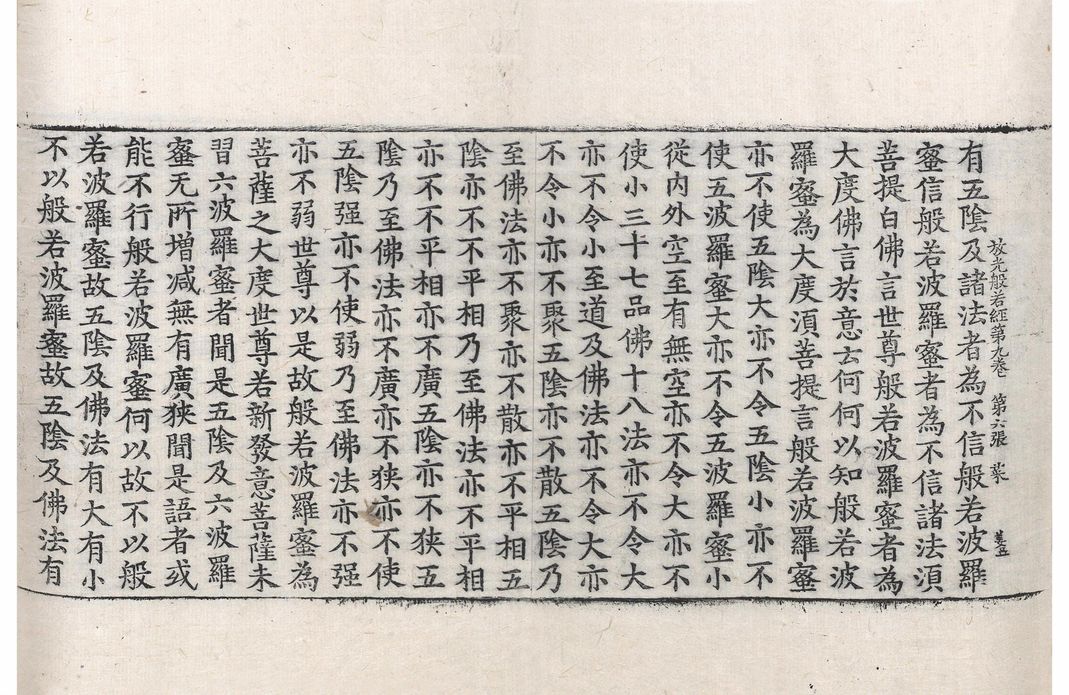 放光般若經第九卷 第六張 菜
有五陰及諸法者為不信般若波羅
蜜信般若波羅蜜者為不信諸法須
菩提白佛言世尊般若波羅蜜者為
大度佛言於意云何何以知般若波
羅蜜為大度須菩提言般若波羅蜜
亦不使五陰大亦不令五陰小亦不
使五波羅蜜大亦不令五波羅蜜小
從內外空至有無空亦不令大亦不
使小三十七品佛十八法亦不令大
亦不令小至道及佛法亦不令大亦
不令小亦不聚五陰亦不散五陰乃
至佛法亦不聚亦不散亦不平相五
陰亦不不平相乃至佛法亦不平相
亦不不平相亦不廣五陰亦不狹五
陰乃至佛法亦不廣亦不狹亦不使
五陰强亦不使弱乃至佛法亦不强
亦不弱世尊以是故般若波羅蜜為
菩薩之大度世尊若新發意菩薩未
習六波羅蜜者聞是五陰及六波羅
蜜无所增减無有廣狹聞是語者或
能不行般若波羅蜜何以故不以般
若波羅蜜故五陰及佛法有大有小
不以般若波羅蜜故五陰及佛法有